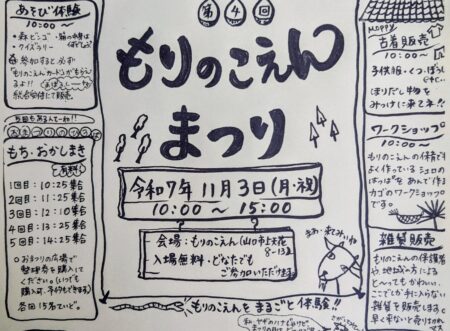 第4回
もりのこえん
まつり
令和7年 11月3日(月・祝)
10:00 ～ 15:00
会場:もりのこえん(山口市大花
8-13
入場無料・どなたでも
ご参加いただけます
もりのこえんをまるごと体験!!
あそび体験
10:00～
・森ビンゴ
・クイズラリー
参加すると必ず
「もりのこえんカード」がもらえ
るよ!!
総合受付にて販売
もち・おかしまき
(有料)
1回目:10:25集合
2回目:11:25集合
3回目:12:10集合
4回目:13:25集合
5回目:14:25集合
○おまつり会場で
整理券を購入して
ください。(いつでも
購入可、予約もできます)
各回15名ていど。
古着販売
10:00～
子供服・くつ・ぼうし
etc...
ほりだし物を
みつけに来てネ!!
ワークショップ
10:00～
もりのこえんの保育で
よく作っているシュロの
はっぱをあんで作る
カゴのワークショップ
です。
雑貨販売
もりのこえんの保護者
や、地域の方による
とってもかわいい、
ここでしか手に入らない
雑貨を販売します。
早く来ないと売り切れ